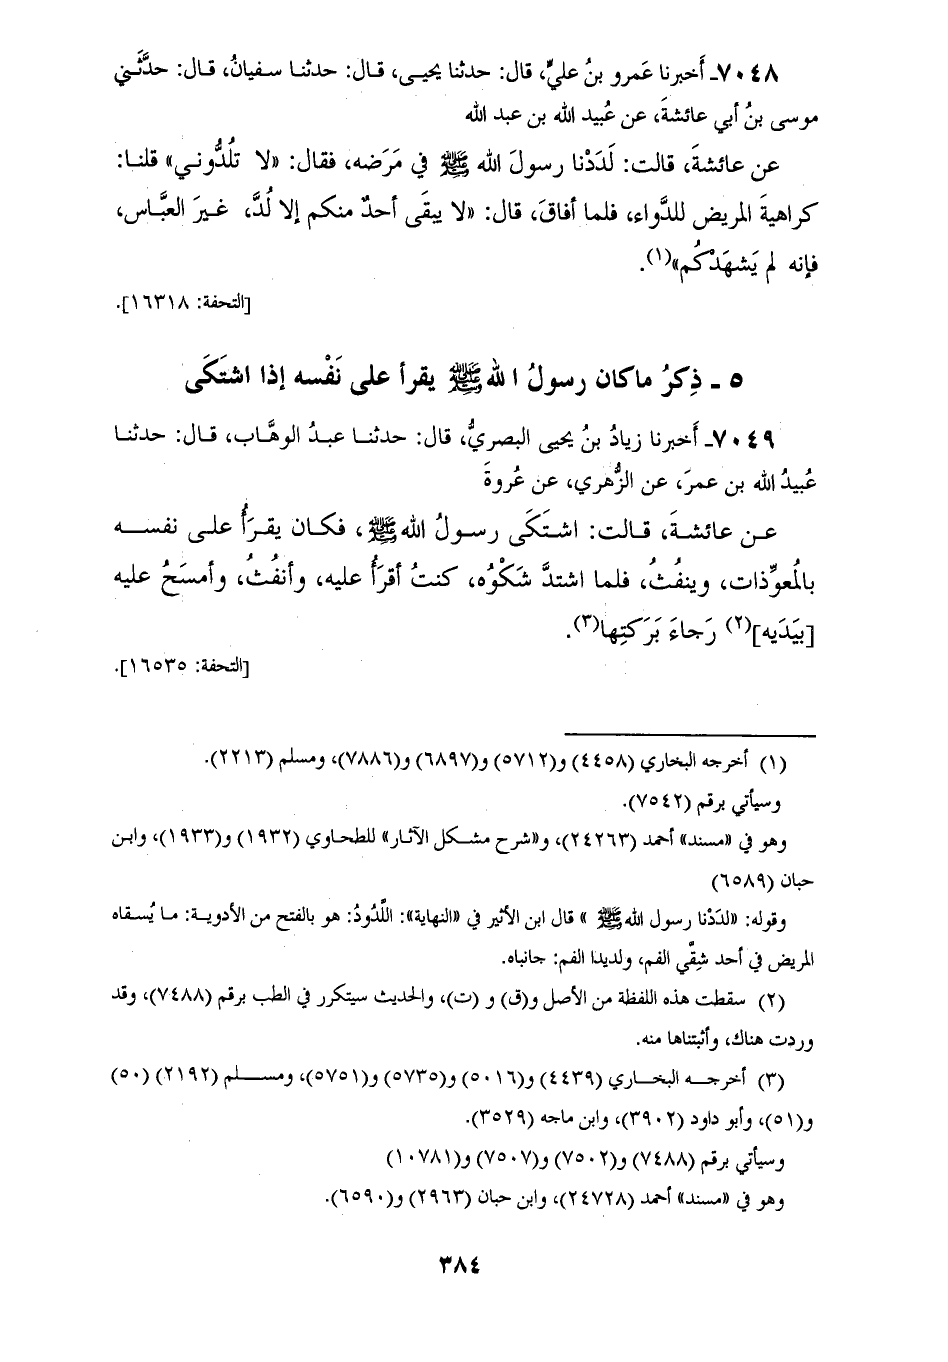 ٧٠٤٨ـ أَخبرنا عَمرو بنُ عليٍّ، قال: حدثنا يحيى، قال: حدثنا سفيانُ، قال: حدَّثَني
موسى بنُ أبي عائشةَ، عن عُبيد الله بن عبد الله
عن عائشةَ، قالت: لَدَدْنا رسولَ الله ﷺ في مَرَضه، فقال: «لا تلُدُّوني» قلنا:
كراهيةَ المريض للدَّواء، فلما أفاقَ، قال: «لا يبقَى أحدٌ منكم إلا لُدَّ، غيرَ العبَّاس،
فإنه لم يَشهَدْكُم»(١).
[التحفة: ١٦٣١٨].
٥ ـ ذِكرُ ماكان رسولُ الله ﷺ يقرأ على نَفْسه إذا اشتَكَى
٧٠٤٩ـ أَخبرنا زيادُ بنُ يحيى البصريُّ، قال: حدثنا عبدُ الوهَّاب، قال: حدثنا
عُبيدُ الله بن عمرَ، عن الزُّهري، عن عُروةَ
عن عائشةَ، قالت: اشتَكَى رسولُ الله ﷺ، فكان يقرَأُ على نفسه
بالمُعوِّذات، وينفُثُ، فلما اشتدَّ شَكْوُه، كنتُ أقرَأُ عليه، وأنفُثُ، وأمسَحُ عليه
[بيَدَيه](٢) رَجاءَ بَرَكتِها(٣).
[التحفة: ١٦٥٣٥].
(١) أخرجه البخاري (٤٤٥٨) و(٥٧١٢) و(٦٨٩٧) و(٧٨٨٦)، ومسلم (٢٢١٣).
وسيأتي برقم (٧٥٤٢).
وهو في «مسند» أحمد (٢٤٢٦٣)، و«شرح مشكل الآثار» للطحاوي (١٩٣٢) و(١٩٣٣)، وابن
حبان (٦٥٨٩)
وقوله: «لدَدْنا رسول الله ﷺ » قال ابن الأثير في «النهاية»: اللَّدُودُ: هو بالفتح من الأدوية: ما يُسقاه
المريض في أحد شِقَّي الفم، ولديدا الفم: جانباه.
(٢) سقطت هذه اللفظة من الأصل و(ق) و (ت)، والحديث سيتكرر في الطب برقم (٧٤٨٨)، وقد
وردت هناك، وأثبتناها منه.
(٣) أخرجه البخاري (٤٤٣٩) و(٥٠١٦) و(٥٧٣٥) و(٥٧٥١)، ومسلم (٢١٩٢) (٥٠)
و(٥١)، وأبو داود (٣٩٠٢)، وابن ماجه (٣٥٢٩).
وسيأتي برقم (٧٤٨٨) و(٧٥٠٢) و(٧٥٠٧) و(١٠٧٨١)
وهو في «مسند» أحمد (٢٤٧٢٨)، وابن حبان (٢٩٦٣) و(٦٥٩٠).
٣٨٤